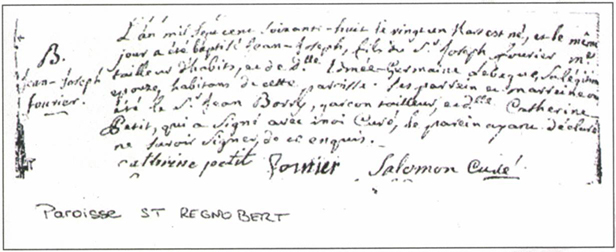 B.
jean-Joseph
fourier.
L'an mil sept cent soixante-huit le vingt un Mars est né, et le même
jour a été baptisé Jean-Joseph, fils du Sr Joseph fourier me
tailleur d'habits, et de dlle Edmée-Germaine Lebegue, sa légitime
epouze, habitans de cette paroisse. ses parrein et marreine ont
été le Sr Jean Borry, garçon tailleur, et dlle Catherine
Petit, qui a signé avec moi Curé, le parein ayant déclaré
ne savoir signer, de ce enquis.
Catherine petit fourier Salomon Curé
Paroisse ST REGNOBERT